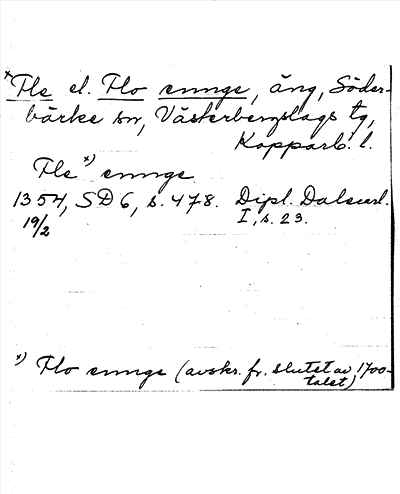 *Fle el. Flo ennge, äng, Söder-
bärke sn, Västerbergslags tg,
Kopparb. l.
Fle *) ennge
1354, SD 6, s. 478. Dipl. Dalecarl.
19/2 I, s. 23.
*) Flo ennge (avskr. fr. slutet av 1700-
talet)